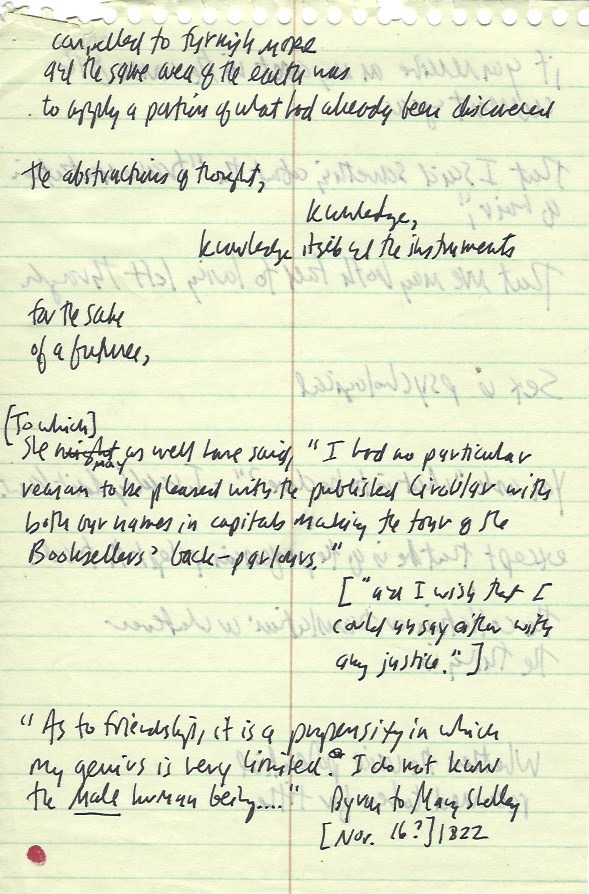 compelled to furnish more
and the same area of the earth was
to apply a portion of what had already been discovered
the abstractions of thought,
knowledge,
knowledge itself and the instruments
for the sake
of a future,
[To which]
She may as well have said, "I had no particular
reason to be pleased with the published Circular with
both our names in capitals making the tour of the
Booksellers' back-parlours."
["and I wish that I
could unsay either with
any justice."]
"As to friendship, it is a propensity in which
my genius is very limited. I do not know
the male human being...." Byron to Mary Shelley
[Nov. 16?] 1822